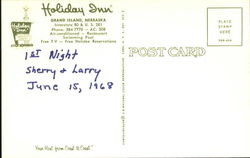 Holiday Inn
GRAND ISLAND, NEBRASKA
Interstate 80 & U. S. 281
Phone: 384-7770 - AC: 308
Air-conditioned - Restaurant
Swimming Pool
Free T V - Free Holiday Reservations
POST CARD
PLACE
STAMP
HERE
1st Night
Sherry & Larry
June 15, 1968
"Your Host from Coast to Coast"